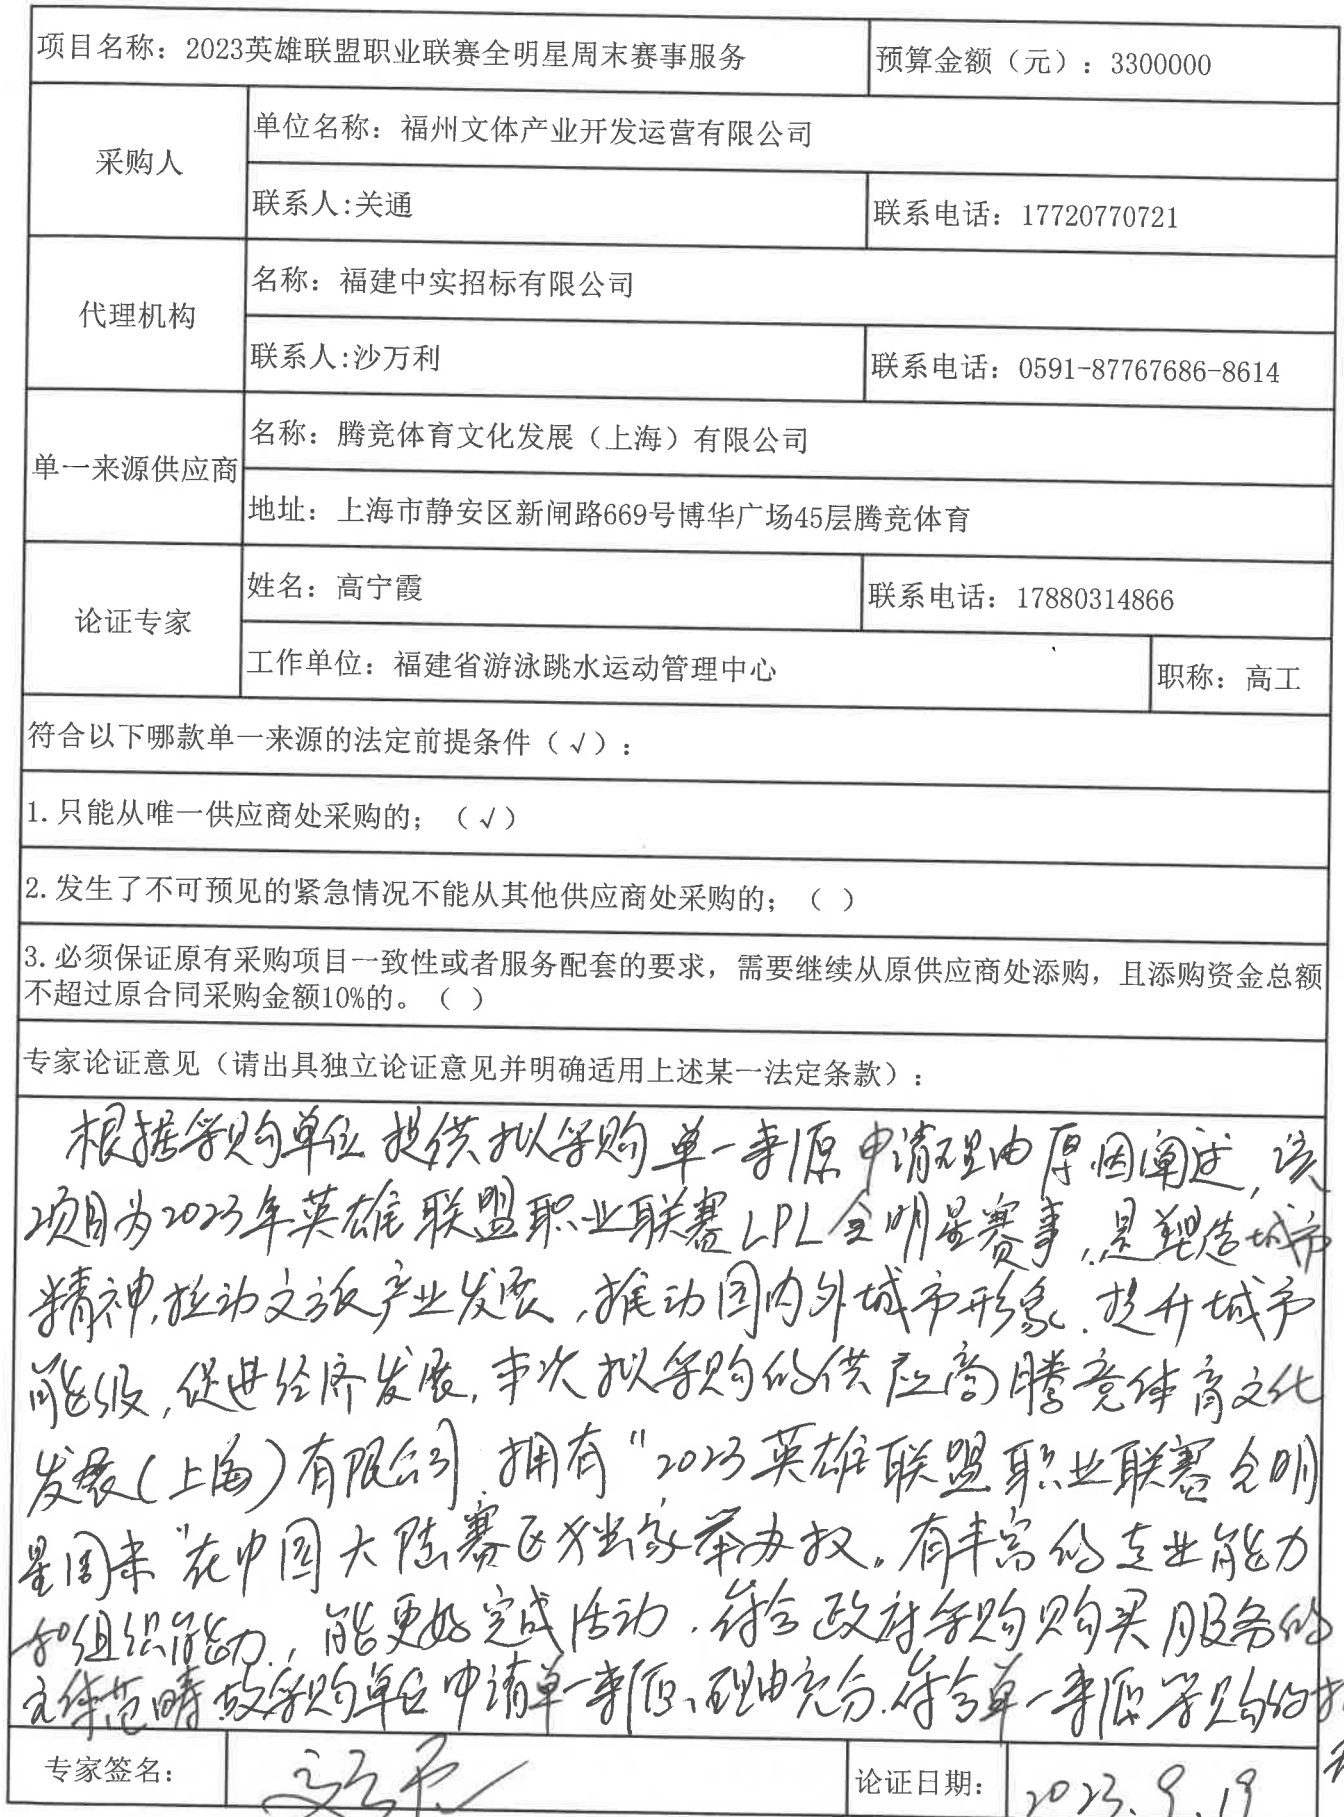 项目名称：2023英雄联盟职业联赛全明星周末赛事服务
预算金额（元）：3300000
采购人
单位名称：福州文体产业开发运营有限公司
联系人:关通
联系电话：17720770721
代理机构
名称：福建中实招标有限公司
联系人:沙万利
联系电话：0591-87767686-8614
单一来源供应商
名称：腾竞体育文化发展（上海）有限公司
地址：上海市静安区新闸路669号博华广场45层腾竞体育
论证专家
姓名：高宁霞
联系电话：17880314866
工作单位：福建省游泳跳水运动管理中心
职称：高工
符合以下哪款单一来源的法定前提条件（√）：
1.只能从唯一供应商处采购的；（√）
2.发生了不可预见的紧急情况不能从其他供应商处采购的；（ ）
3.必须保证原有采购项目一致性或者服务配套的要求，需要继续从原供应商处添购，且添购资金总额
不超过原合同采购金额10%的。（ ）
专家论证意见（请出具独立论证意见并明确适用上述某一法定条款）：
根据采购单位提供拟采购单一来源申请理由原因阐述，该
项目为2023年英雄联盟职业联赛LPL全明星赛事，是塑造城市
精神，拉动文旅产业发展，推动国内外城市形象，提升城市
能级，促进经济发展，本次拟采购的供应商腾竞体育文化
发展（上海）有限公司，拥有“2023英雄联盟职业联赛全明
星周末”在中国大陆赛区独家举办权。有丰富的专业能力
和组织能力，能更好完成活动，符合政府采购购买服务的
主体范畴，故采购单位申请单一来源，理由充分，符合单一来源采购的
专家签名：
论证日期：
2023.9.19